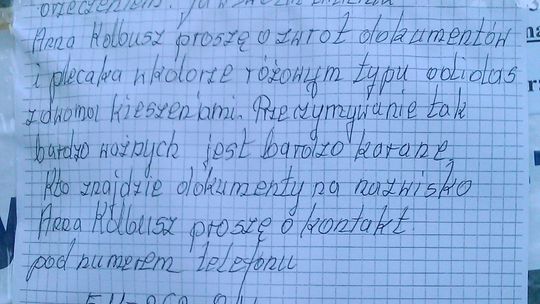 orzeczeniem
Anna Kolbusz proszę o zwrot dokumentów
i plecaka w kolorze różowym typu adidas
z dwoma kieszeniami. Przetrzymywanie tak
bardzo ważnych jest bardzo karane,
Kto znajdzie dokumenty na nazwisko
Anna Kolbusz proszę o kontakt.
pod numerem telefonu